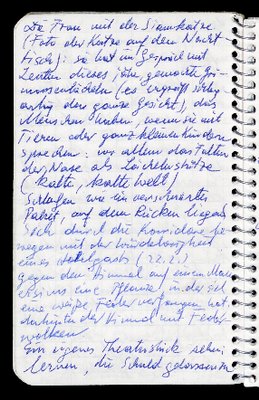 Die Frau mit der Siamkatze
(Foto der Katze auf dem Nacht
tisch): sie hat im Gespräch mit
Leuten dieses
(es ergreift
artig das ganze Gesicht), das
Menschen haben, wenn sie mit
Tieren oder ganz kleinen Kindern
sprechen: vor allem das Falten
der Nase als
(Kalte, kalte Welt)
Schlafen wie ein verschnürtes
Paket, auf dem Rücken liegend
Sich durch die Korridore be-
wegen mit der Würdelosigkeit
eines Hotelgasts (22.2.)
gegen den Himmel auf einem
eine Pflanze, in der sich
eine weiße Feder verfangen hat
dahinter der Himmel mit Feder
wolken
Ein eigenes Theaterstück sehen:
lernen, die Schuld